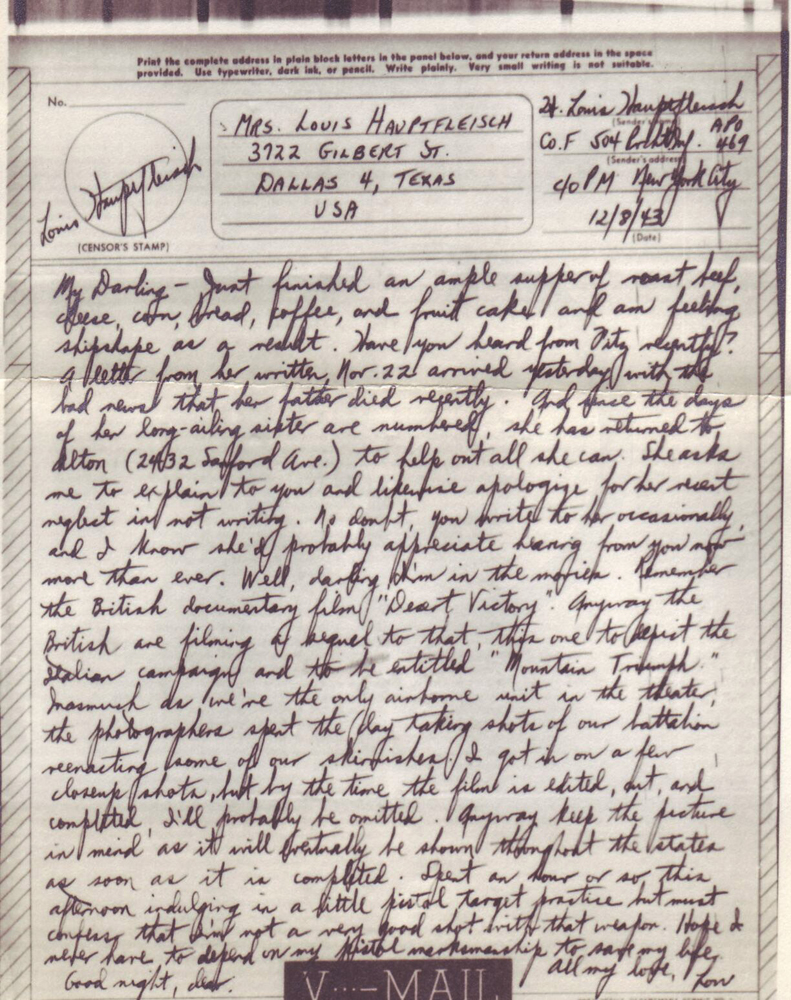 Print the complete address in plain block letters in the panel below, and your return address in the space
provided. Use typewriter, dark ink, or pencil. Write plainly. Very small writing is not suitable.
No.
Louis Hauptfleisch
(CENSOR'S STAMP)
MRS. LOUIS HAUPTFLEISCH
3722 GILBERT ST.
DALLAS 4, TEXAS
USA
Lt. Louis Hauptfleisch
(Sender's name)
Co. F 504 Prcht Inf. APO 469
(Sender's address)
c/o PM New York City
12/8/43
(Date)
My Darling - Just finished an ample supper of roast beef,
cheese, corn, bread, coffee, and fruit cake and am feeling
shipshape as a result. Have you heard from recently?
A letter from her written Nov. 22 arrived yesterday with the
bad news that her father died recently. And since the days
of her long-ailing sister are numbered, she has returned to
Alton (2432 Sanford Ave.) to help out all she can. She asks
me to explain to you and likewise apologize for her recent
neglect in not writing. No doubt, you write to her occasionally,
and I know she'd probably appreciate hearing from you now
more than ever. Well, darling I'm in the movies. Remember
the British documentary film "Desert Victory". Anyway the
British are filming a sequel to that, this one to depict the
Italian campaign and to be entitled "Mountain Triumph."
Inasmuch as we're the only airborne unit in the theater,
the photographers spent the day taking shots of our battalion
reenacting some of our skirmishes. I got in on a few
closeup shots, but by the time the film is edited, cut, and
completed, I'll probably be omitted. Anyway keep the picture
in mind as it will eventually be shown throughout the states
as soon as it is completed. Spent an hour or so this
afternoon indulging in a little pistol target practice but must
confess that I'm not a very good shot with that weapon. Hope I
never have to depend on my pistol marksmanship to save my life.
Good night, dear. All my love, Lou
V···—MAIL